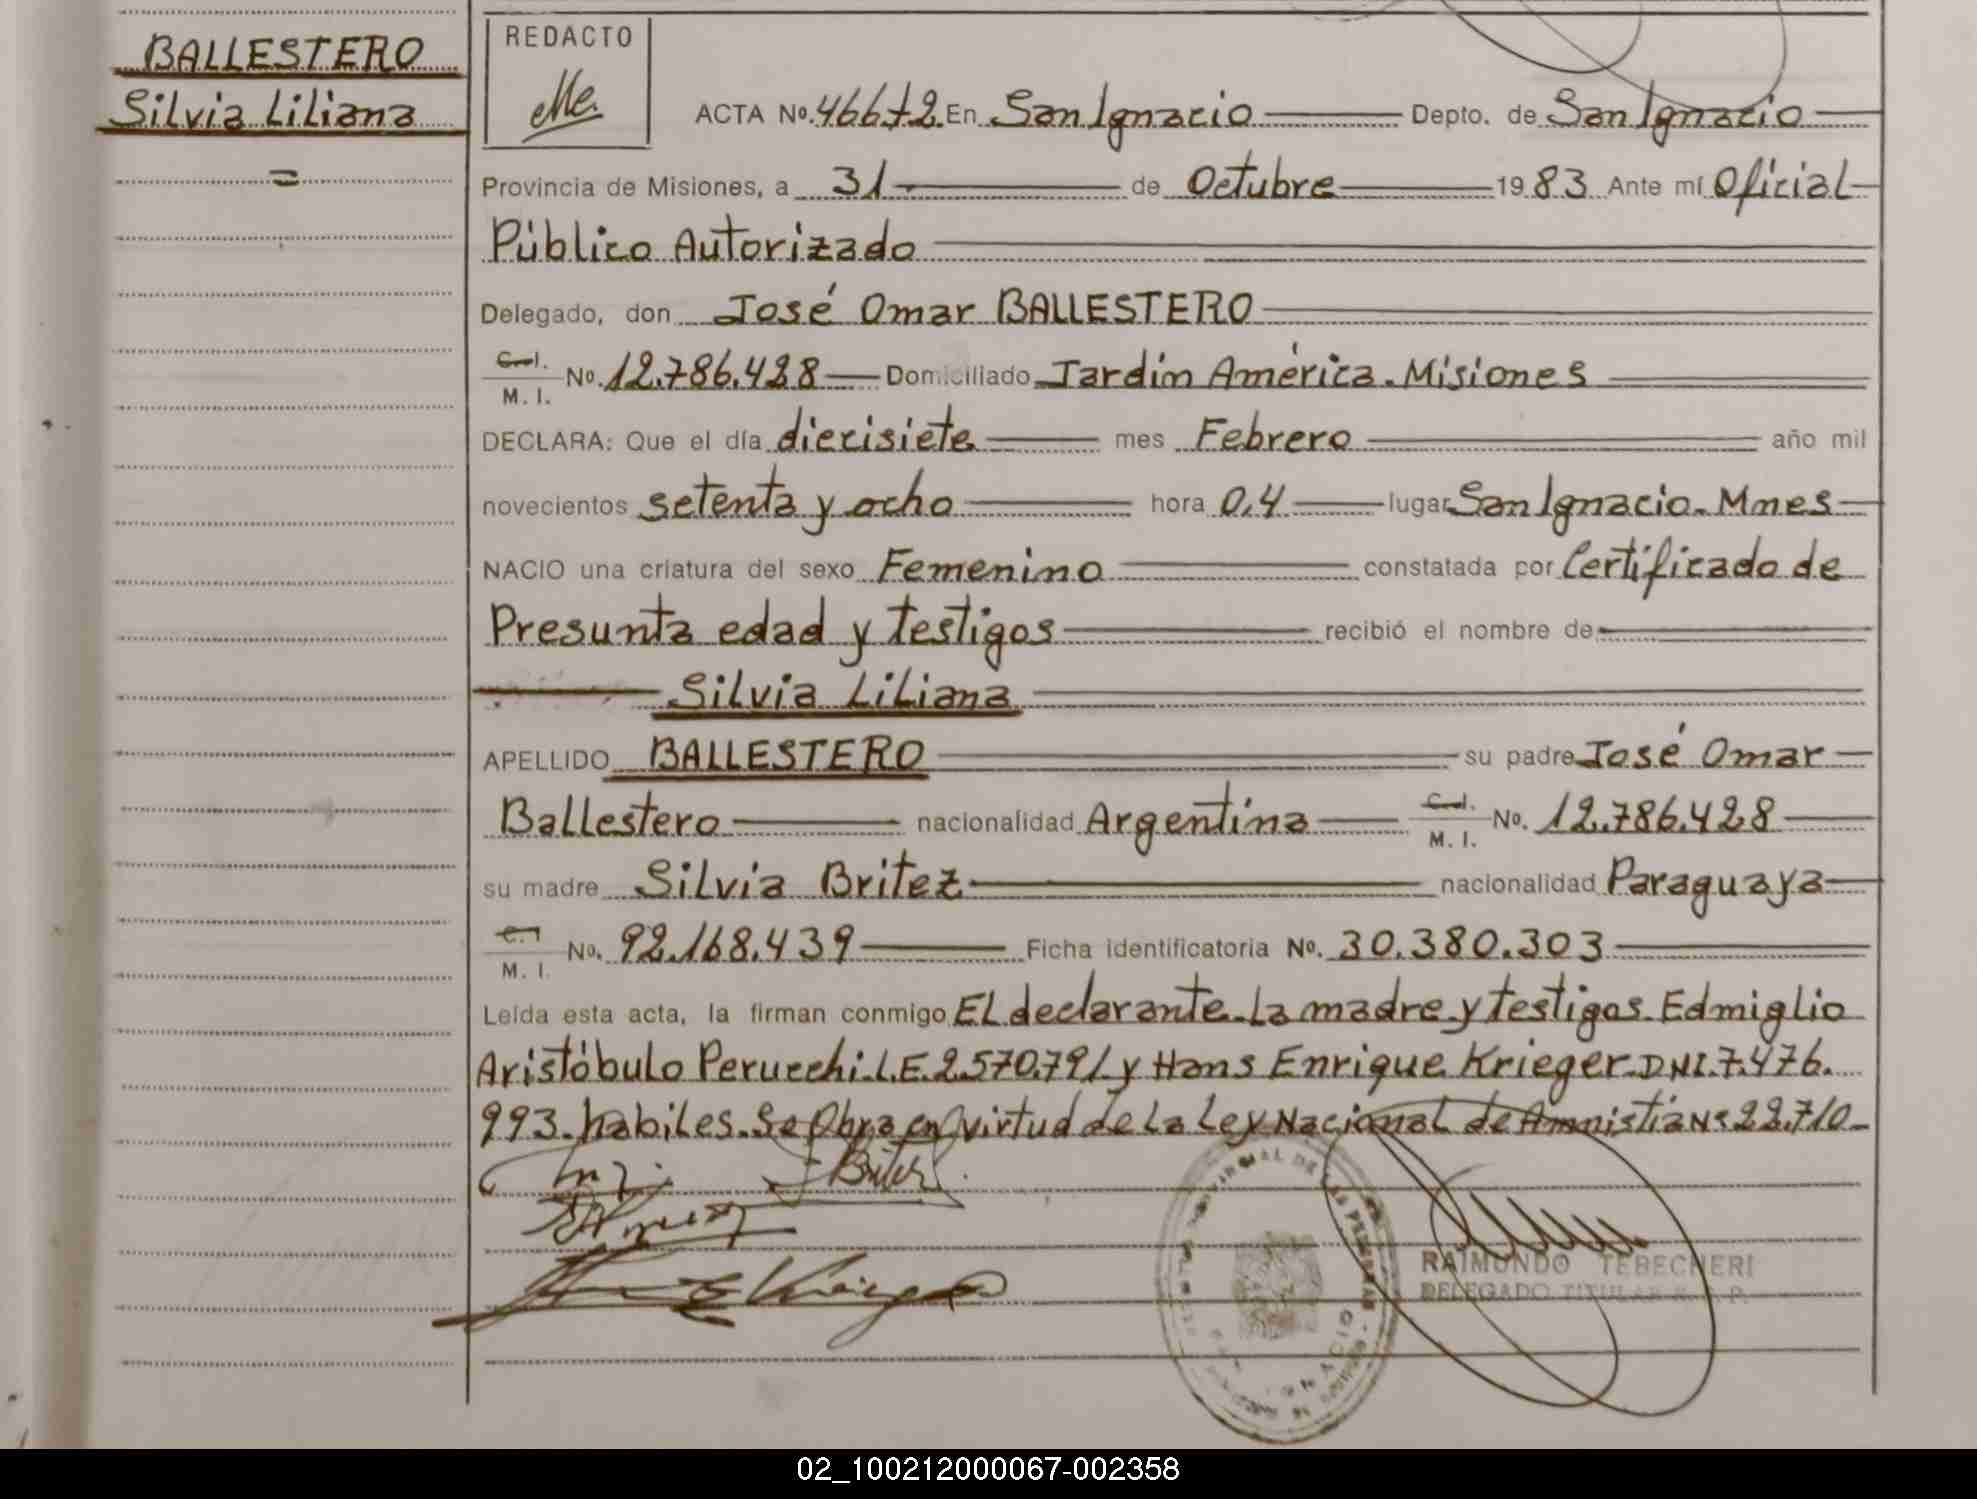 BALLESTERO
Silvia Liliana
=
REDACTO
ACTA No. 46672 En San Ignacio Depto. de San Ignacio
Provincia de Misiones, a 31 de Octubre 1983 Ante mí Oficial
Público Autorizado
Delegado, don José Omar BALLESTERO
C.I.
M. I. No. 12.786.428 Domiciliado Jardín América. Misiones
DECLARA: Que el día diecisiete mes Febrero año mil
novecientos setenta y ocho hora 0,4 lugar San Ignacio. Mnes
NACIO una criatura del sexo Femenino constatada por Certificado de
Presunta edad y testigos recibió el nombre de
Silvia Liliana
APELLIDO BALLESTERO su padre José Omar
Ballestero nacionalidad Argentina C.I. M. I. No. 12.786.428
su madre Silvia Britez nacionalidad Paraguaya
C.I
M. I. No. 92.168.439 Ficha identificatoria No. 30.380.303
Leída esta acta, la firman conmigo El declarante. La madre y testigos. Edmiglio
Aristóbulo Perucchi. L.E. 2.570.791 y Hans Enrique Krieger. DNI. 7.476.
993. habiles. Se Obra en virtud de la Ley Nacional de Amnistía Nº 22.710
RAIMUNDO TEBECHERI
DELEGADO TITULAR R. P.
02_100212000067-002358